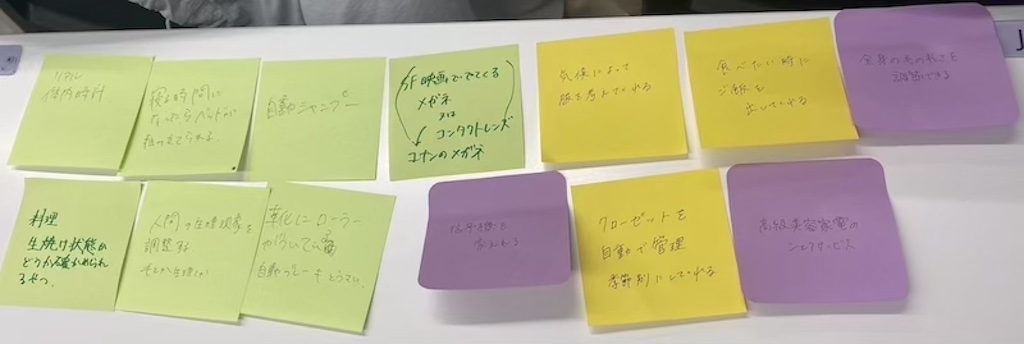 リアル
体内時計
寝る時間に
なったらベッドが
自動シャンプー
SF映画ででてくる
メガネ
又は
コンタクトレンズ
コナンのメガネ
気候によって
服を考えてくれる
食べたい時に
ご飯を
出してくれる
全身の毛の
調節できる
料理
生焼け状態か
どうか確かめられ
るやつ。
人間の生理現象を
調整する
靴にローラー
がついてて
自動
信号機を
クローゼットを
自動で管理
季節別にしてくれる
高級美容家電の
シェアサービス
J